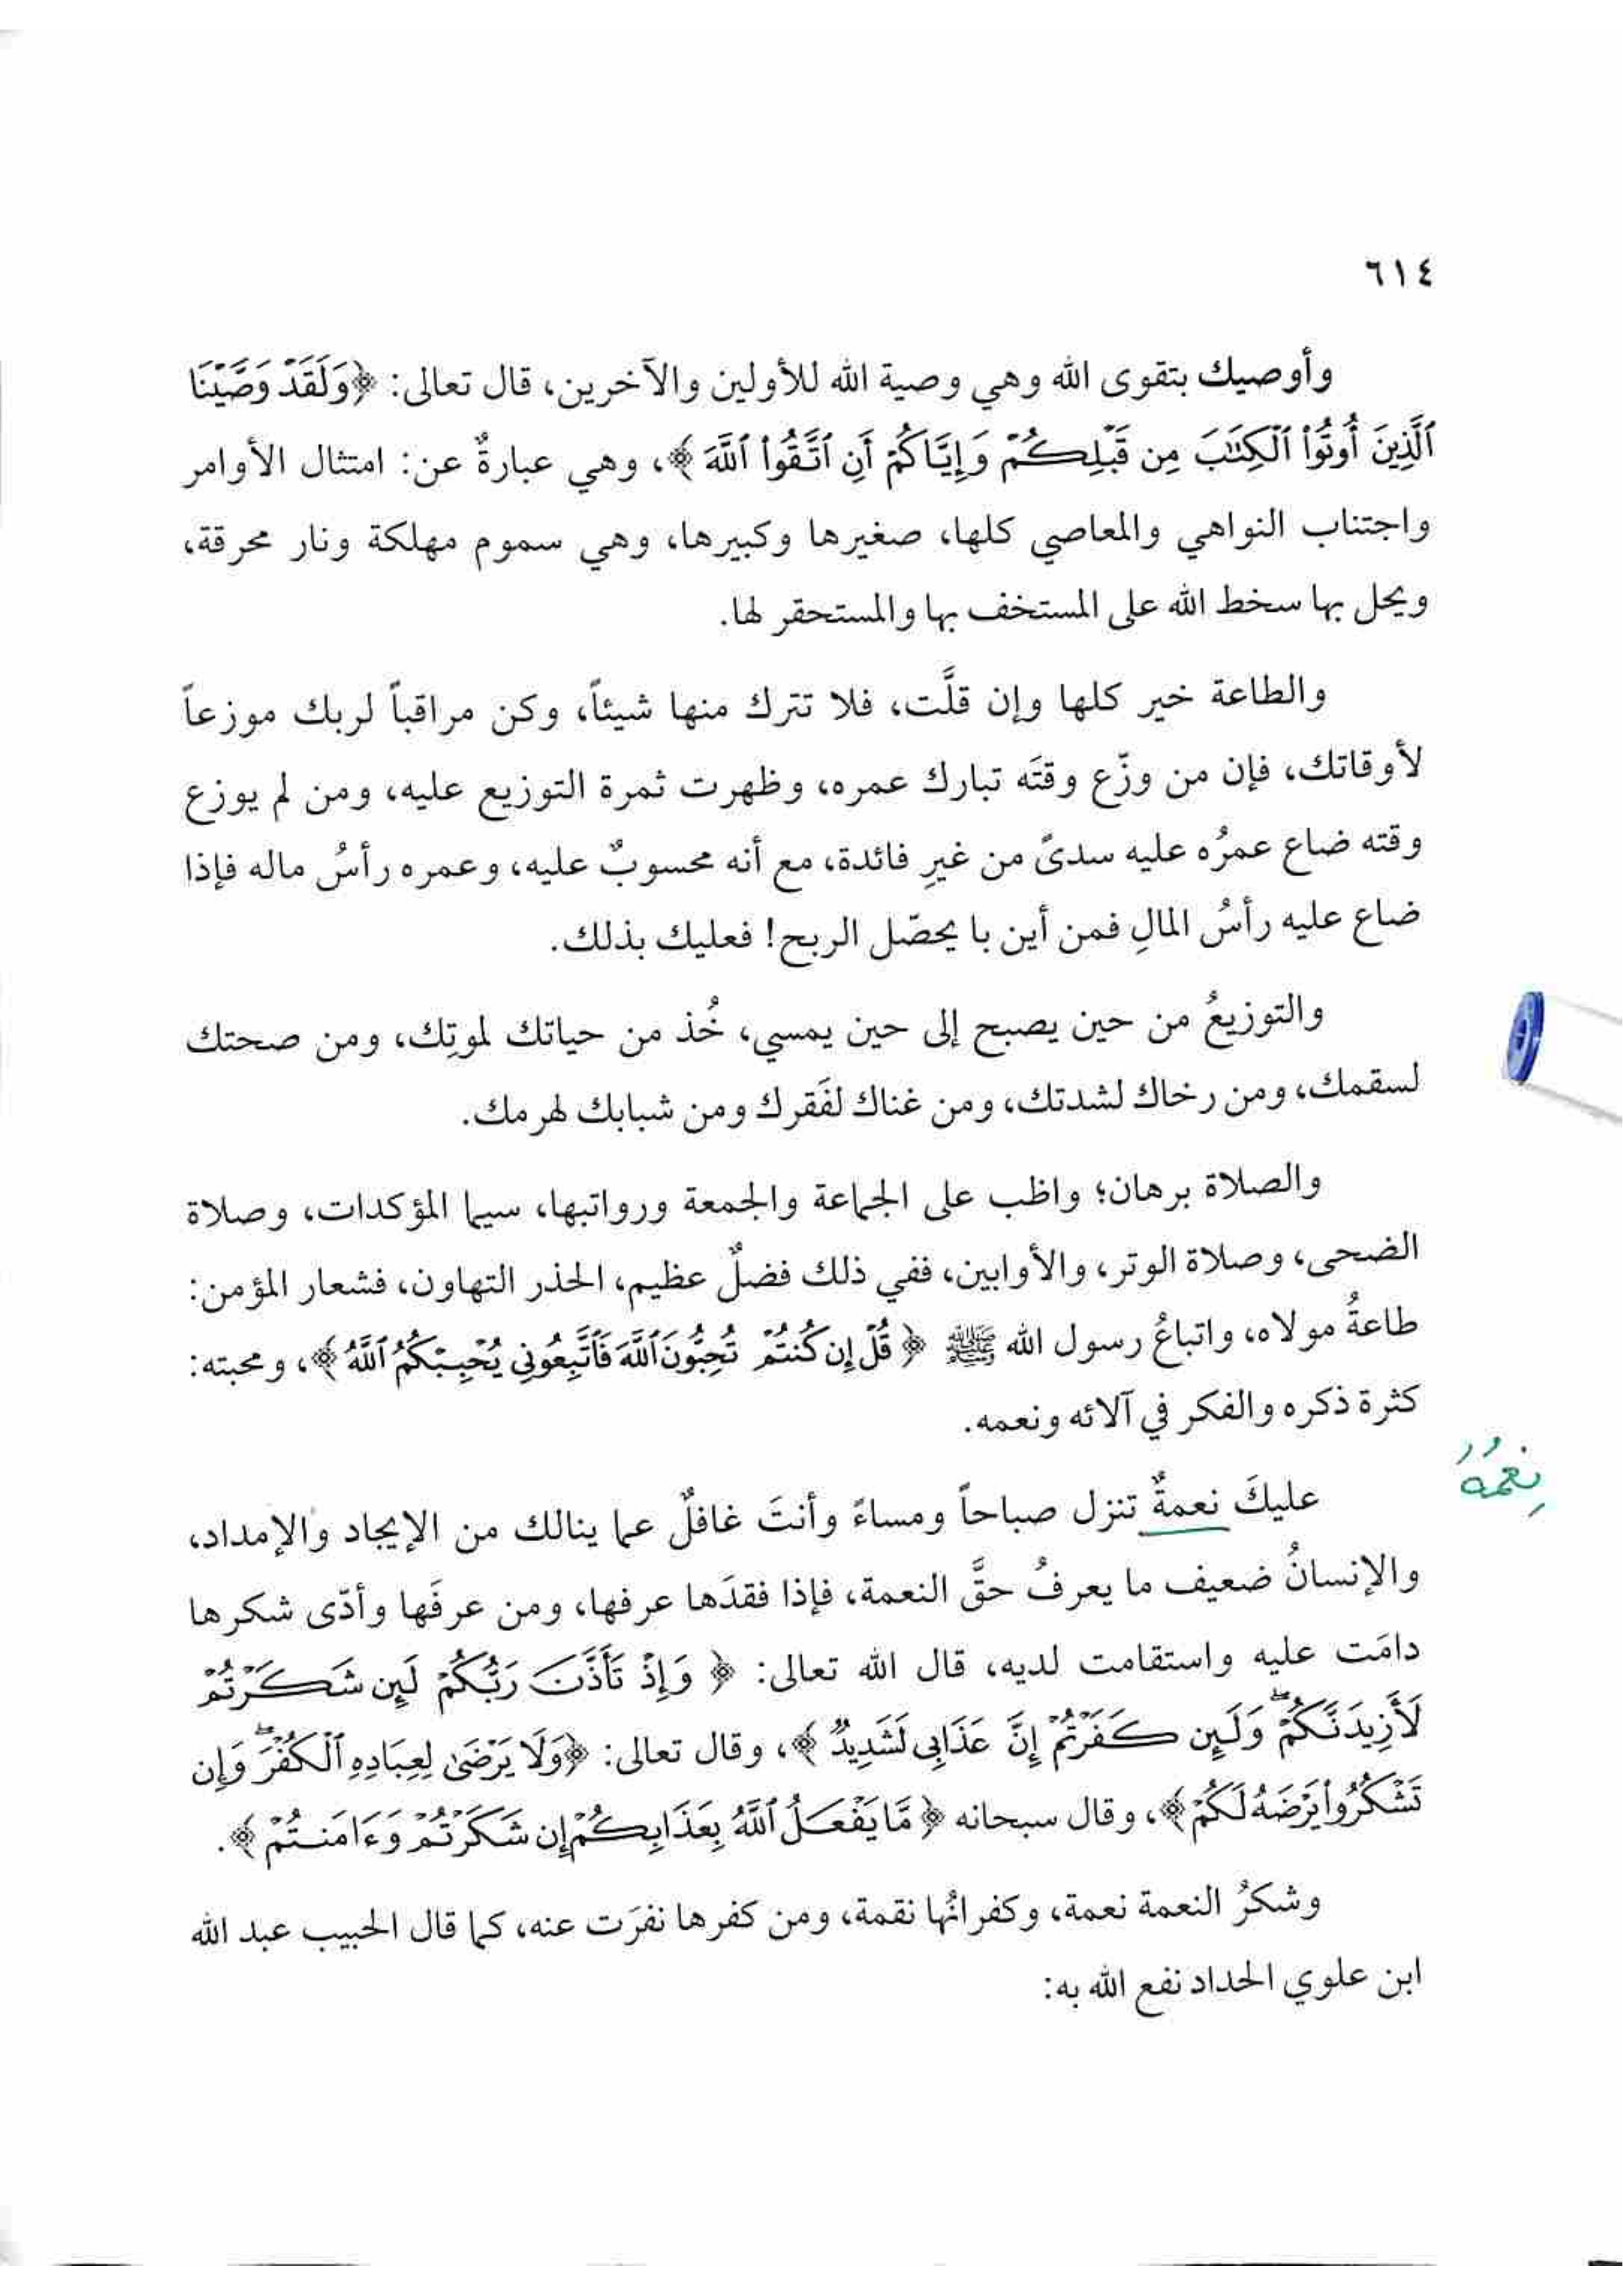 ٦١٤
وأوصيك بتقوى الله وهي وصية الله للأولين والآخرين، قال تعالى: ﴿وَلَقَدْ وَصَّيْنَا
ٱلَّذِينَ أُوتُوا۟ ٱلْكِتَٰبَ مِن قَبْلِكُمْ وَإِيَّاكُمْ أَنِ ٱتَّقُوا۟ ٱللَّهَ﴾، وهي عبارةٌ عن: امتثال الأوامر
واجتناب النواهي والمعاصي كلها، صغيرها وكبيرها، وهي سموم مهلكة ونار محرقة،
ويحل بها سخط الله على المستخف بها والمستحقر لها.
والطاعة خير كلها وإن قلَّت، فلا تترك منها شيئاً، وكن مراقباً لربك موزعاً
لأوقاتك، فإن من وزّع وقتَه تبارك عمره، وظهرت ثمرة التوزيع عليه، ومن لم يوزع
وقته ضاع عمرُه عليه سدىً من غيرِ فائدة، مع أنه محسوبٌ عليه، وعمره رأسُ ماله فإذا
ضاع عليه رأسُ المالِ فمن أين با يحصّل الربح! فعليك بذلك.
والتوزيعُ من حين يصبح إلى حين يمسي، خُذ من حياتك لموتِك، ومن صحتك
لسقمك، ومن رخاك لشدتك، ومن غناك لفَقرك ومن شبابك لهرمك.
والصلاة برهان؛ واظب على الجماعة والجمعة ورواتبها، سيما المؤكدات، وصلاة
الضحى، وصلاة الوتر، والأوابين، ففي ذلك فضلٌ عظيم، الحذر التهاون، فشعار المؤمن:
طاعةُ مولاه، واتباعُ رسول الله ﷺ ﴿قُلْ إِن كُنتُمْ تُحِبُّونَ ٱللَّهَ فَٱتَّبِعُونِى يُحْبِبْكُمُ ٱللَّهُ﴾، ومحبته:
كثرة ذكره والفكر في آلائه ونعمه.
عليكَ نعمةٌ تنزل صباحاً ومساءً وأنتَ غافلٌ عما ينالك من الإيجاد والإمداد،
نِعَمُهُ
والإنسانُ ضعيف ما يعرفُ حقَّ النعمة، فإذا فقدَها عرفها، ومن عرفَها وأدّى شكرها
دامَت عليه واستقامت لديه، قال الله تعالى: ﴿وَإِذْ تَأَذَّنَ رَبُّكُمْ لَئِن شَكَرْتُمْ
لَأَزِيدَنَّكُمْ ۖ وَلَئِن كَفَرْتُمْ إِنَّ عَذَابِى لَشَدِيدٌ﴾، وقال تعالى: ﴿وَلَا يَرْضَىٰ لِعِبَادِهِ ٱلْكُفْرَ ۖ وَإِن
تَشْكُرُوا۟ يَرْضَهُ لَكُمْ﴾، وقال سبحانه ﴿مَّا يَفْعَلُ ٱللَّهُ بِعَذَابِكُمْ إِن شَكَرْتُمْ وَءَامَنتُمْ﴾.
وشكرُ النعمة نعمة، وكفرانُها نقمة، ومن كفرها نفرَت عنه، كما قال الحبيب عبد الله
ابن علوي الحداد نفع الله به: